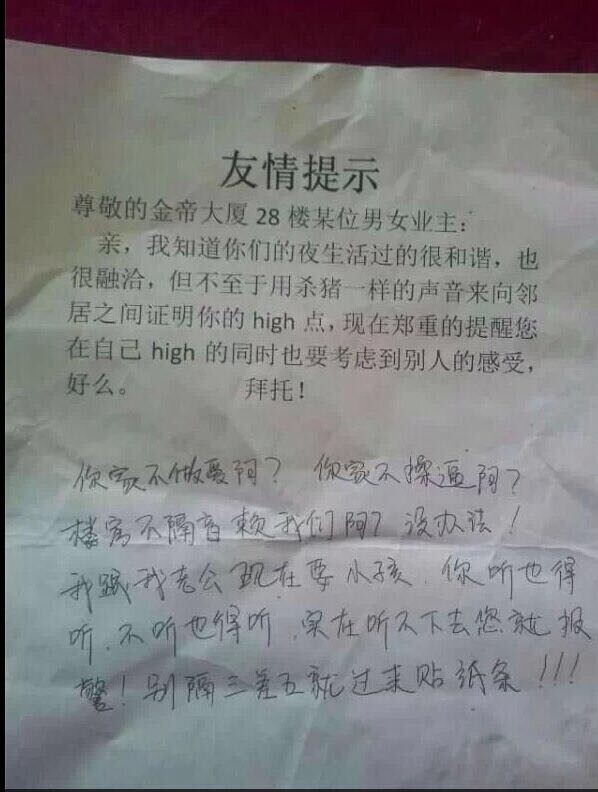 友情提示
尊敬的金帝大厦 28 楼某位男女业主：
亲，我知道你们的夜生活过的很和谐，也
很融洽，但不至于用杀猪一样的声音来向邻
居之间证明你的 high 点，现在郑重的提醒您
在自己 high 的同时也要考虑到别人的感受，
好么。 拜托！
你家不做爱阿？ 你家不操逼阿？
楼房不隔音赖我们阿？没办法！
我跟我老公现在要小孩．你听也得
听、不听也得听．实在听不下去您就报
警！别隔三差五就过来贴纸条！！！